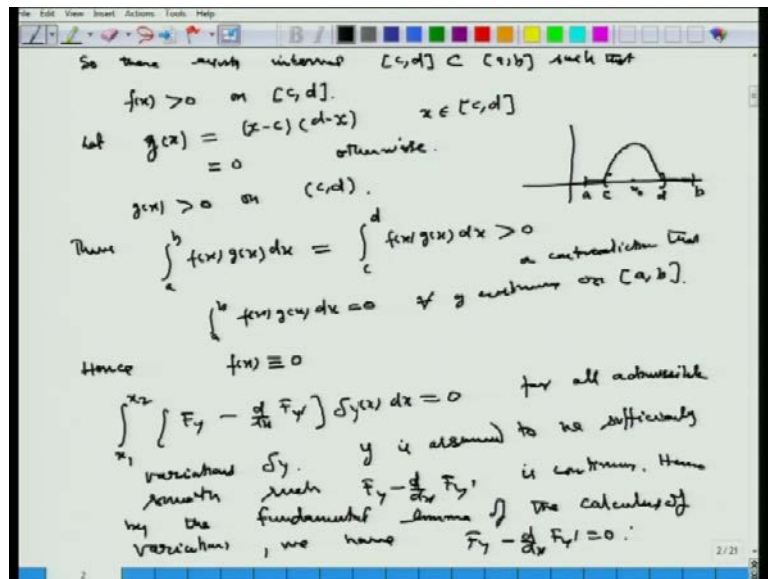 File Edit View Insert Actions Tools Help
So there exists interval [c,d] ⊂ [a,b] such that
f(x) > 0 on [c,d].
Let g(x) = (x-c)(d-x) x ∈ [c,d]
= 0 otherwise.
g(x) > 0 on (c,d).
a c x₀ d b
Then ∫_a^b f(x) g(x) dx = ∫_c^d f(x) g(x) dx > 0
a contradiction that
∫_a^b f(x) g(x) dx = 0 ∀ g continuous on [a,b].
Hence f(x) ≡ 0
∫_{x₁}^{x₂} [F_y - d/dx F_y'] δy(x) dx = 0 for all admissible
variations δy. y is assumed to be sufficiently
smooth such F_y - d/dx F_y' is continuous. Hence
by the fundamental lemma of the calculus of
variations, we have F_y - d/dx F_y' = 0.
2/21
2